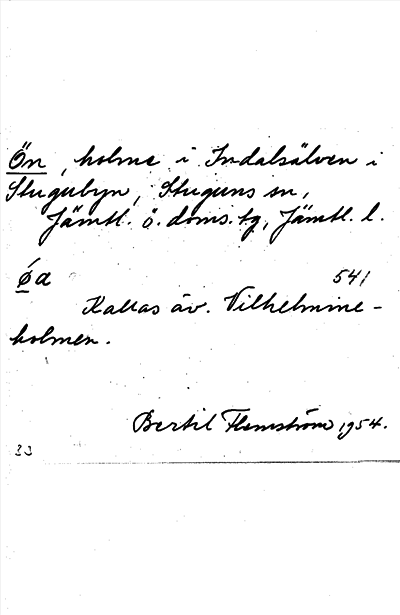 Ön, holme i Indalsälven i
Stugubyn, Stuguns sn,
Jämtl. ö. doms. tg, Jämtl. l.
öa 541
Kallas äv. Vilhelmine-
holmen.
Bertil Flemström 1954.